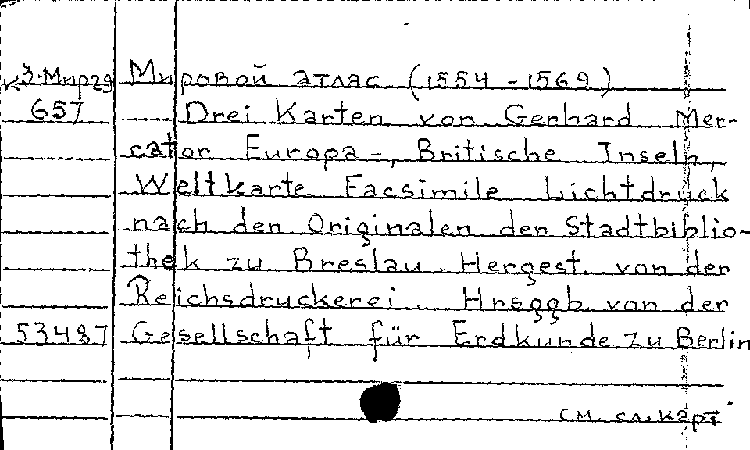 К З-Мир29 Мировой атлас (1554-1569)
657 Drei Karten von Gerhard Mer-
cator Europa-, Britische Inseln,
Weltkarte Facsimile Lichtdruck
nach den Originalen der Stadtbiblio-
thek zu Breslau. Hergest. von der
Reichsdruckerei. Hrsggb. von der
53487 Gesellschaft für Erdkunde zu Berlin
см. сл. карт